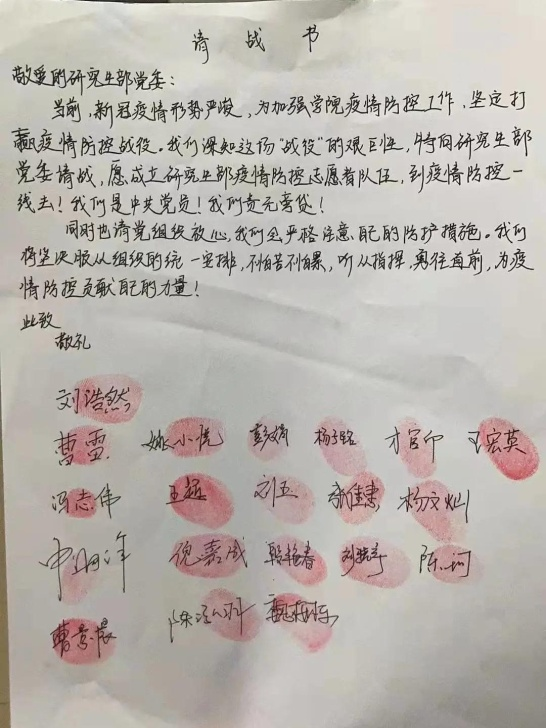 请战书
敬爱的研究生部党委：
当前，新冠疫情形势严峻，为加强学院疫情防控工作，坚定打
赢疫情防控战役。我们深知这场“战役”的艰巨性，特向研究生部
党委请战，愿成立研究生部疫情防控志愿者队伍，到疫情防控一
线去！我们是中共党员！我们责无旁贷！
同时也请党组织放心，我们会严格注意自己的防护措施。我们
将坚决服从组织的统一安排，不怕苦不怕累，听从指挥，勇往直前，为疫
情防控贡献自己的力量！
此致
敬礼
刘浩然
曹雪 姚小悦 彭婧 杨子路 王宏英
冯志伟 王超 刘五 张佳惠 杨文灿
倪嘉成 段艳春 陈坷
曹景晨